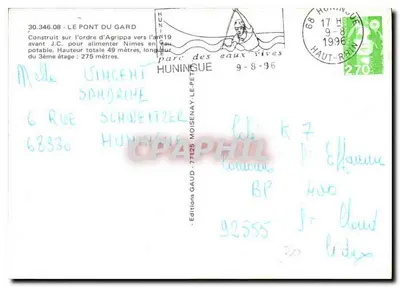 30.346.08 - LE PONT DU GARD
Construit sur l'ordre d'Agrippa vers l'an 19
avant J.C. pour alimenter Nimes en eau
potable. Hauteur totale 49 mètres, longueur
du 3ème étage : 275 mètres.
Melle VINCENT
SANDRINE
6 RUE SCHWEITZER
HUNINGUE
68330
HUNINGUE
parc des eaux vives
HUNINGUE 9-8-96
68 HUNINGUE
17 H
9-8
1996
HAUT-RHIN
2,70
- Editions GAUD - 77125 MOISENAY-LE-PETIT
K 7
BP 400
92555 St Cloud
Cedex
CARTHAPHIL